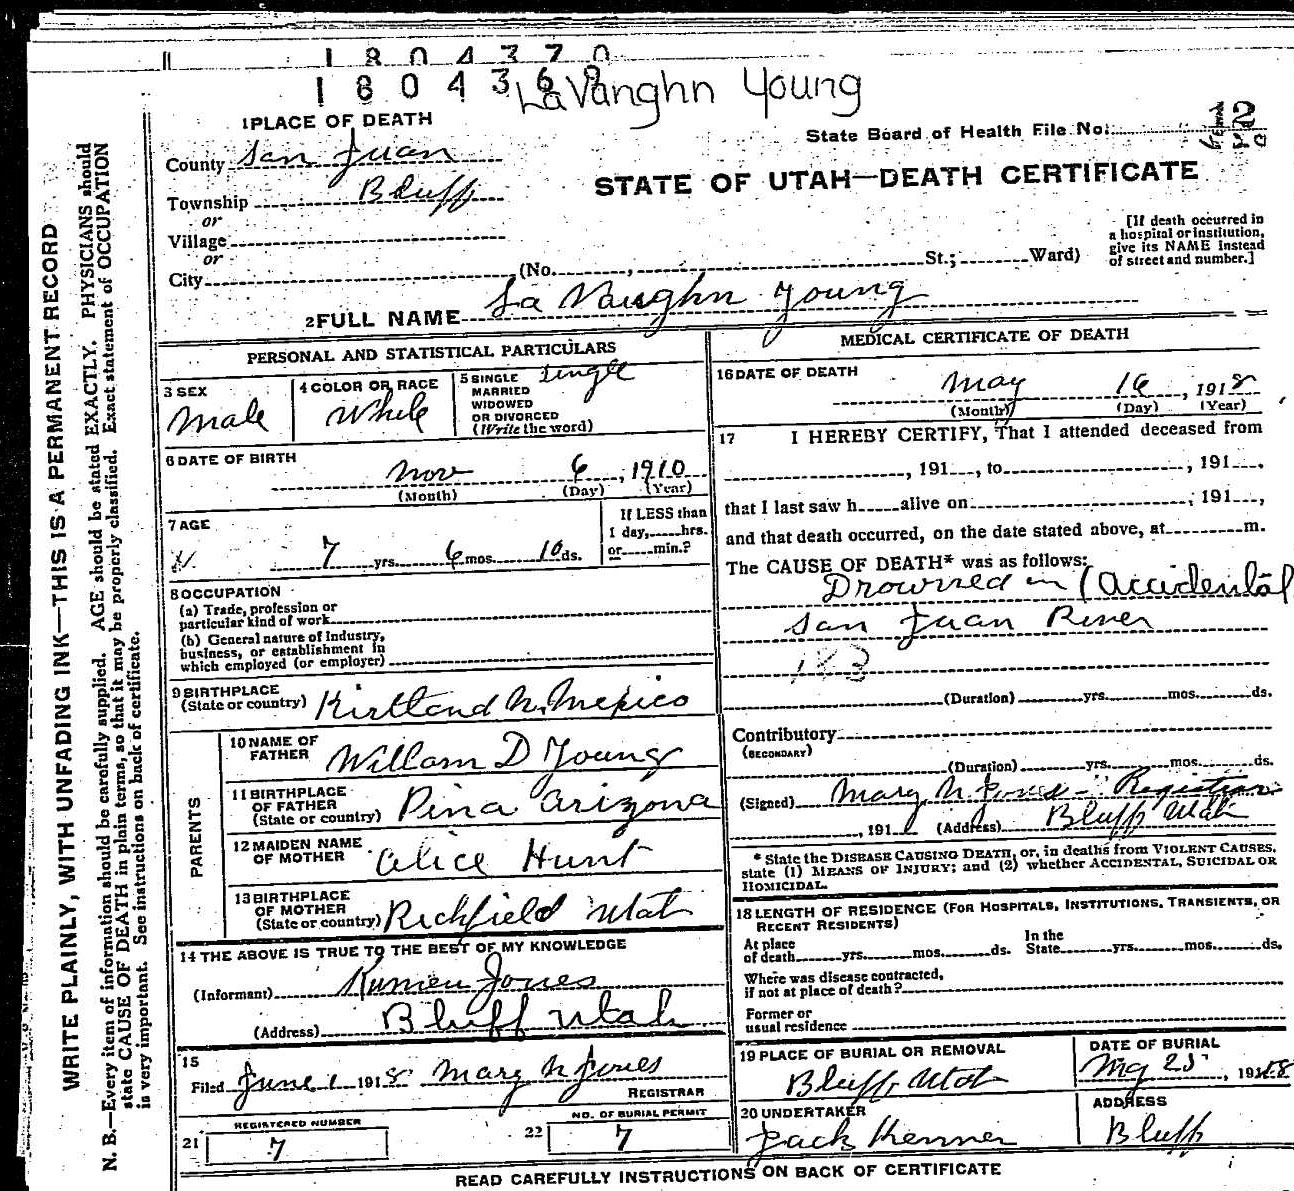 1804370
1804369
LaVanghn Young
1 PLACE OF DEATH
State Board of Health File No.
County San Juan
STATE OF UTAH—DEATH CERTIFICATE
Township Bluff
or
Village
or
City (No. , St.; Ward)
[If death occurred in
a hospital or institution,
give its NAME instead
of street and number.]
2 FULL NAME La Vaughn Young
PERSONAL AND STATISTICAL PARTICULARS
3 SEX
Male
4 COLOR OR RACE
White
5 SINGLE
MARRIED
WIDOWED
OR DIVORCED
(Write the word)
Single
6 DATE OF BIRTH
Nov 6, 1910
(Month) (Day) (Year)
7 AGE
7 yrs. 6 mos. 10 ds.
If LESS than
1 day, hrs.
or min.?
8 OCCUPATION
(a) Trade, profession or
particular kind of work
(b) General nature of Industry,
business, or establishment in
which employed (or employer)
9 BIRTHPLACE
(State or country) Kirtland N. Mexico
PARENTS
10 NAME OF
FATHER William D Young
11 BIRTHPLACE
OF FATHER
(State or country) Pina Arizona
12 MAIDEN NAME
OF MOTHER Alice Hunt
13 BIRTHPLACE
OF MOTHER
(State or country) Richfield Utah
14 THE ABOVE IS TRUE TO THE BEST OF MY KNOWLEDGE
(Informant) Jones
(Address) Bluff Utah
15
Filed June 1 1918 Mary N Jones
REGISTRAR
REGISTERED NUMBER
21 7
NO. OF BURIAL PERMIT
22 7
MEDICAL CERTIFICATE OF DEATH
16 DATE OF DEATH
May 16, 1918
(Month) (Day) (Year)
17 I HEREBY CERTIFY, That I attended deceased from
, 191 , to , 191 ,
that I last saw h alive on , 191 ,
and that death occurred, on the date stated above, at m.
The CAUSE OF DEATH* was as follows:
Drowned in (Accidental
San Juan River
183
(Duration) yrs. mos. ds.
Contributory
(SECONDARY)
(Duration) yrs. mos. ds.
(Signed) Mary N. Jones - Registrar
, 191 (Address) Bluff Utah
* State the DISEASE CAUSING DEATH, or, in deaths from VIOLENT CAUSES,
state (1) MEANS OF INJURY; and (2) whether ACCIDENTAL, SUICIDAL OR
HOMICIDAL.
18 LENGTH OF RESIDENCE (FOR HOSPITALS, INSTITUTIONS, TRANSIENTS, OR
RECENT RESIDENTS)
At place
of death yrs. mos. ds.
In the
State yrs. mos. ds.
Where was disease contracted,
if not at place of death?
Former or
usual residence
19 PLACE OF BURIAL OR REMOVAL
Bluff, Utah
DATE OF BURIAL
May 25, 1918
20 UNDERTAKER
Jack Kenner
ADDRESS
Bluff
READ CAREFULLY INSTRUCTIONS ON BACK OF CERTIFICATE
WRITE PLAINLY, WITH UNFADING INK—THIS IS A PERMANENT RECORD
N. B.—Every item of information should be carefully supplied. AGE should be stated EXACTLY. PHYSICIANS should
state CAUSE OF DEATH in plain terms, so that it may be properly classified. Exact statement of OCCUPATION
is very important. See instructions on back of certificate.